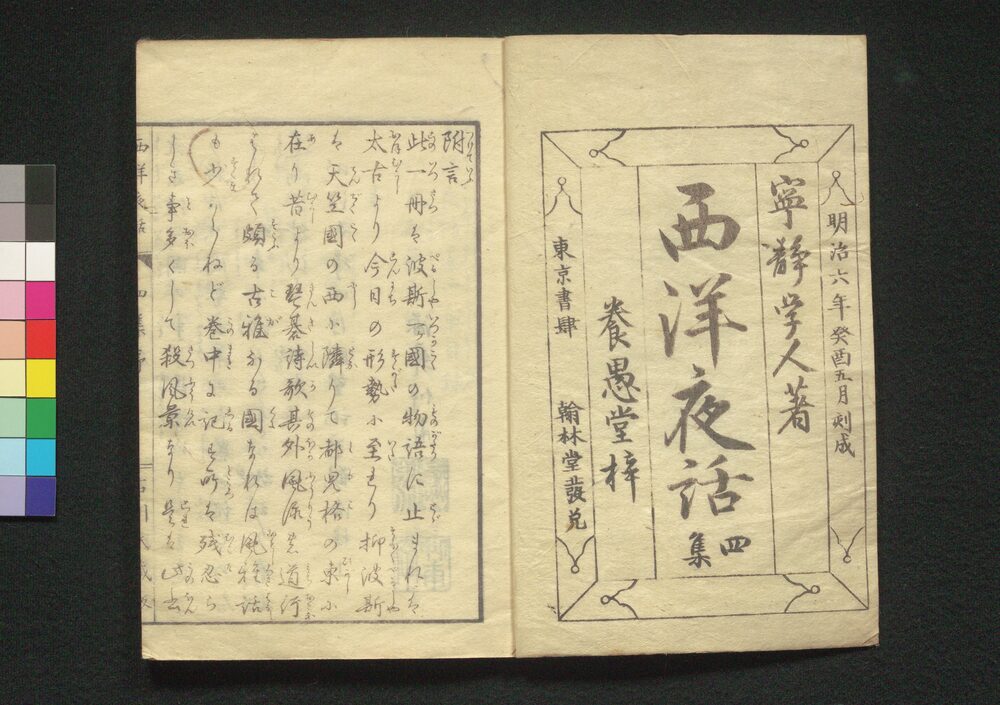 明治六年癸酉五月刻成
寧静学人著
西洋夜話 四集
養愚堂梓
東京書肆 翰林堂發兌
附言
此一冊は波斯一国の物語に止まれは
太古より今日の形勢に至れり抑波斯
は天竺國の西に隣りて都児格の東に
在り昔より琴碁詩歌其外風流の道行
はれて頗る古雅なる国なれは風雅の話
も少からねど巻中に記す所は残忍らしき
事多くして殺風景なり
西洋夜話 四集